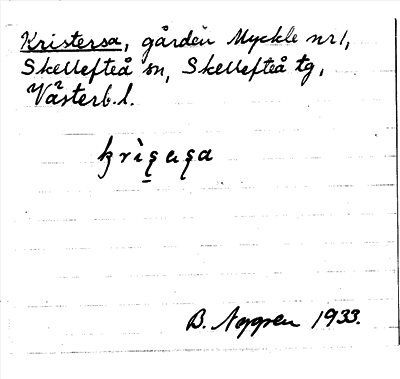 Kristersa, gården Myckle nr 1,
Skellefteå sn, Skellefteå tg,
Västerb. l.
B. Noggren 1933.